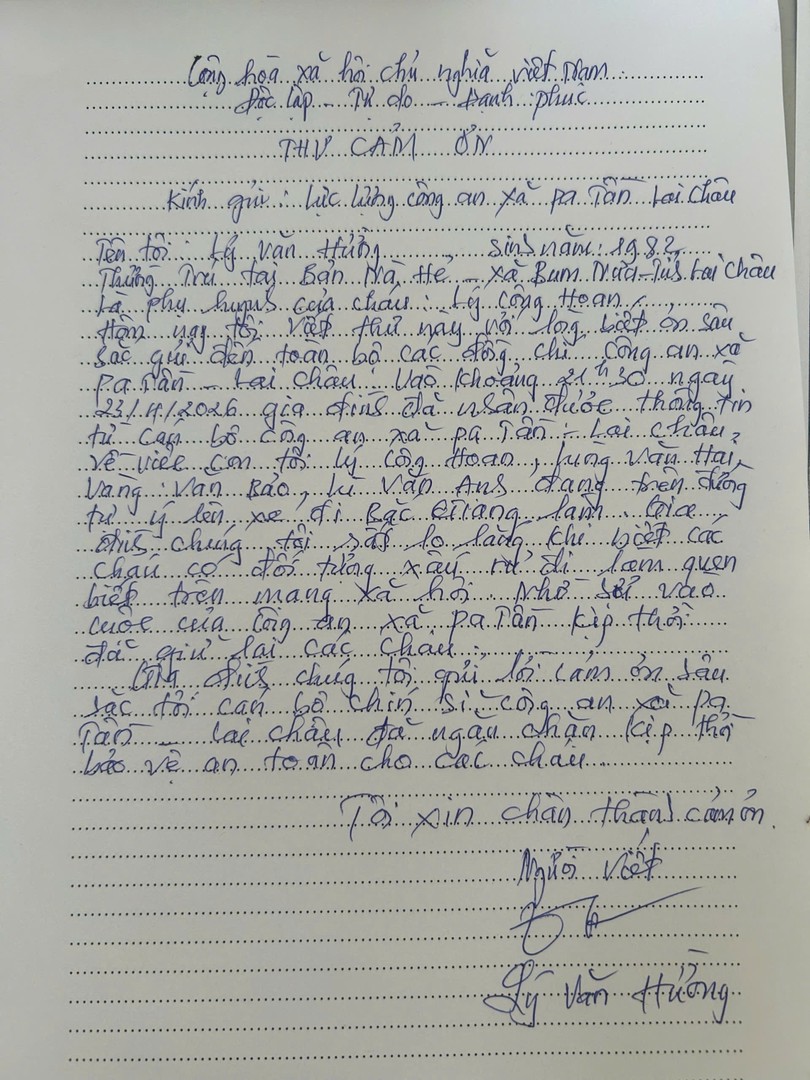 Cộng hòa xã hội chủ nghĩa việt Nam
Độc lập - Tự do - Hạnh phúc
THƯ CẢM ƠN
Kính gửi : lực lượng công an xã pa Tần Lai Châu
Tên tôi : Lý Văn Hưởng sinh năm : 1982
Thường Trú tại Bản Nà Hẻ - xã Bum Nưa - tỉnh Lai Châu
Là phụ huynh của cháu : Lý Công Hoan
Hôm nay tôi viết thư này với lòng biết ơn sâu
sắc gửi đến toàn bộ các đồng chí công an xã
pa Tần - Lai Châu : Vào khoảng 21h30 ngày
23/4/2026 gia đình đã nhận được thông tin
từ cán bộ công an xã pa Tần - Lai Châu
về việc con tôi lý công Hoan, lung Văn Hai,
Vàng Văn Bảo, Lù Văn Anh đang trên đường
tự ý lên xe đi Bắc Giang làm. Gia
đình chúng tôi rất lo lắng khi biết các
cháu có đối tượng xấu rủ đi làm quen
biết trên mạng xã hội. Nhờ sự vào
cuộc của công an xã pa Tần kịp thời
đã giữ lại các cháu.
Gia đình chúng tôi gửi lời cảm ơn sâu
sắc tới cán bộ chiến sĩ công an xã pa
Tần - lai châu đã ngăn chặn kịp thời
bảo vệ an toàn cho các cháu
Tôi xin chân thành cảm ơn
Người viết
Lý Văn Hưởng